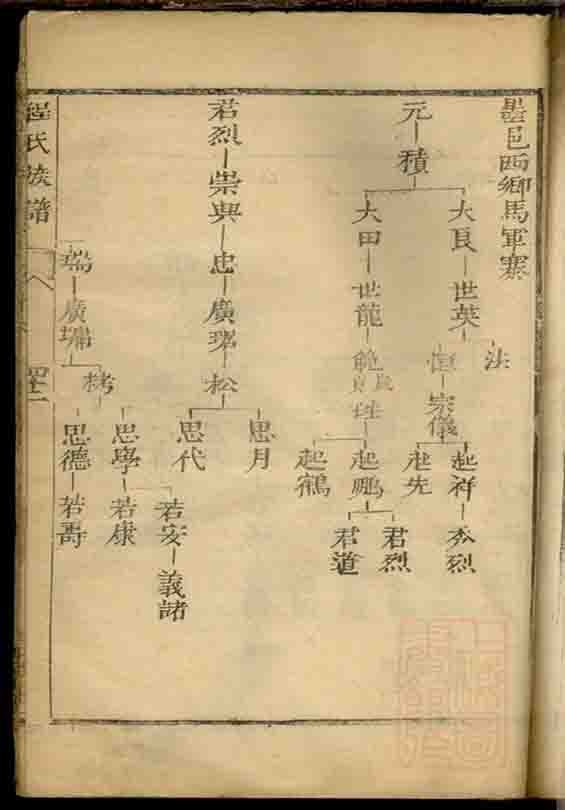 墨邑西鄉馬軍寨
元積
大良世英
法
恒宗儀
起祥秀烈
起先
大田世龍
起鵬
君烈
君道
起鶴
君烈崇典忠廣瑤松
思月
思代
瑞廣
栲
若安義諸
思學若康
思德若壽
程氏族譜